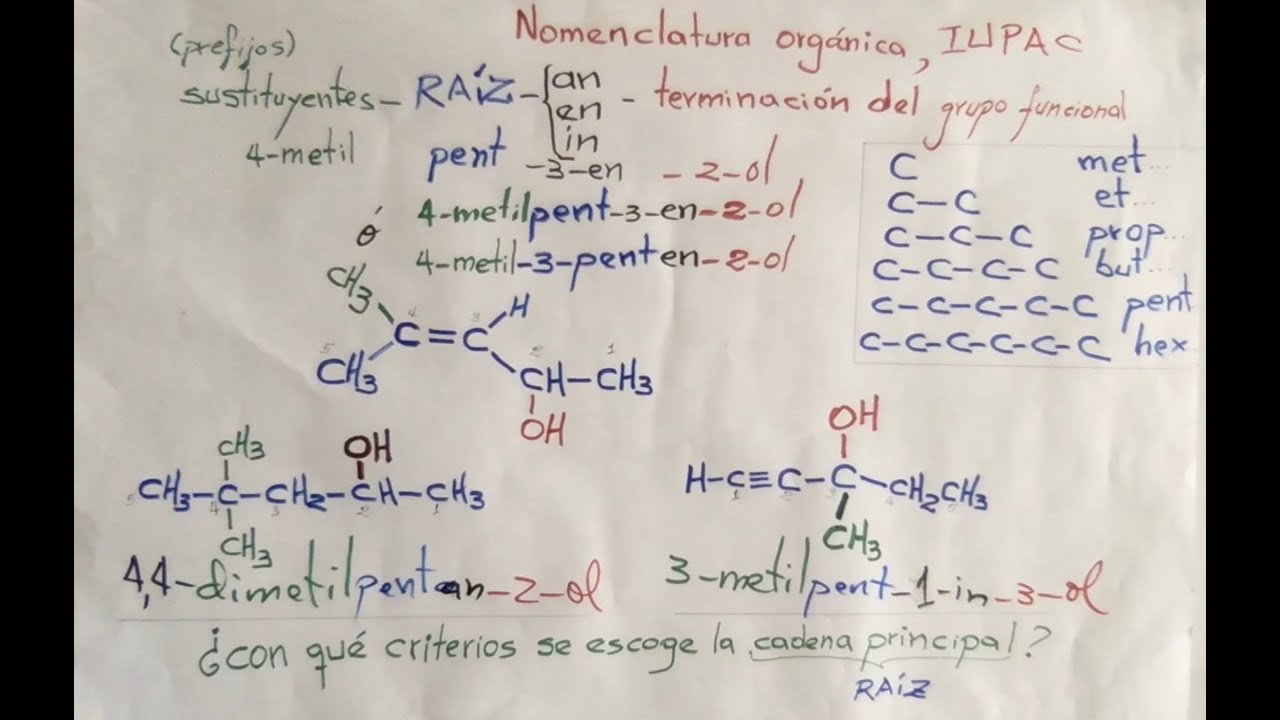 Nomenclatura orgánica, IUPAC
(prefijos)
sustituyentes - RAÍZ - { an en in - terminación del grupo funcional
4-metil pent -3-en -2-ol
4-metilpent-3-en-2-ol
ó
4-metil-3-penten-2-ol
C met...
C-C et...
C-C-C prop...
C-C-C-C but...
C-C-C-C-C pent
C-C-C-C-C-C hex
CH3 H
4 3
C=C
5 2 1
CH3 CH-CH3
OH
CH3 OH
CH3-C-CH2-CH-CH3
5 4 3 2 1
CH3
4,4-dimetilpentan-2-ol
OH
H-C≡C-C-CH2CH3
1 2 3 4 5
CH3
3-metilpent-1-in-3-ol
¿con qué criterios se escoge la cadena principal?
RAÍZ